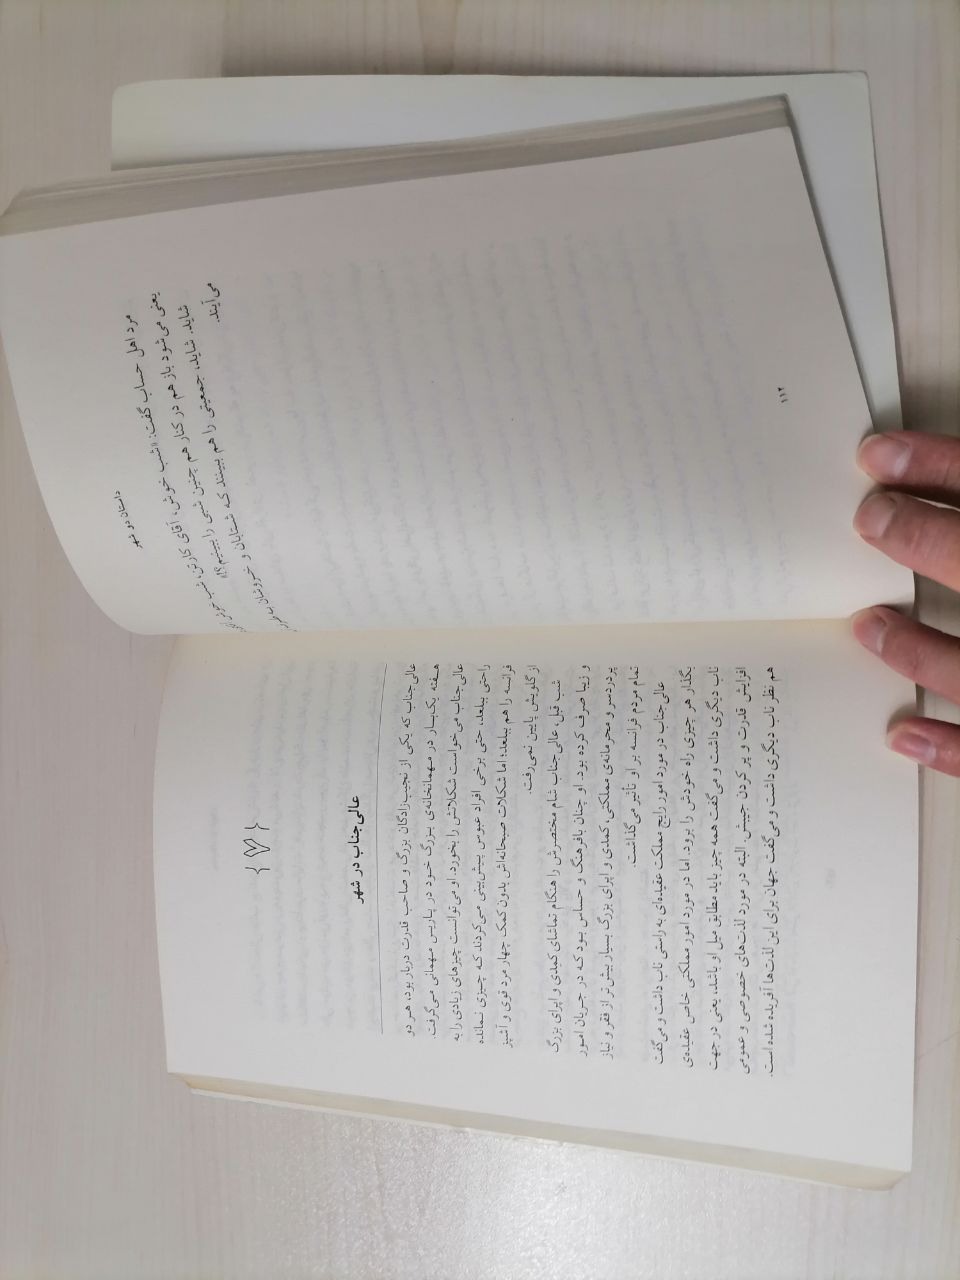 داستان دو شهر
مرد اهل حساب گفت: «شب خوش، آقای کارتن، شب خوش
یعنی می‌شود باز هم در کنار هم چنین شبی را ببینیم؟!»
شاید. شاید، جمعیتی را هم ببینند که شتابان و خروشان به طرف
می‌آیند.
۱۱۲
{۷}
عالی‌جناب در شهر
عالی‌جناب که یکی از نجیب‌زادگان بزرگ و صاحب قدرت دربار بود، هر دو
هفته یک‌بار در مهمانخانه‌ی بزرگ خود در پاریس مهمانی می‌گرفت.
عالی‌جناب می‌خواست شکلاتش را بخورد. او می‌توانست چیزهای زیادی را به
راحتی ببلعد، حتی برخی افراد عبوس پیش‌بینی می‌کردند که چیزی نمانده
فرانسه را هم ببلعد؛ اما شکلات صبحانه‌اش بدون کمک چهار مرد قوی و آشپز
از گلویش پایین نمی‌رفت.
شب قبل، عالی‌جناب شام مختصرش را هنگام تماشای کمدی و اپرای بزرگ
و زیبا صرف کرده بود. او چنان بافرهنگ و حساس بود که در جریان امور
پردردسر و محرمانه‌ی مملکتی، کمدی و اپرای بزرگ بسیار بیش‌تر از فقر و نیاز
تمام مردم فرانسه بر او تأثیر می‌گذاشت.
عالی‌جناب در مورد امور رایج مملکت عقیده‌ای به راستی ناب داشت و می‌گفت
بگذار هر چیزی راه خودش را برود، اما در مورد امور مملکتی خاص عقیده‌ی
ناب دیگری داشت و می‌گفت همه چیز باید مطابق میل او باشد، یعنی در جهت
افزایش قدرت و پر کردن جیبش. البته در مورد لذت‌های خصوصی و عمومی
هم نظر ناب دیگری داشت و می‌گفت جهان برای این لذت‌ها آفریده شده است.